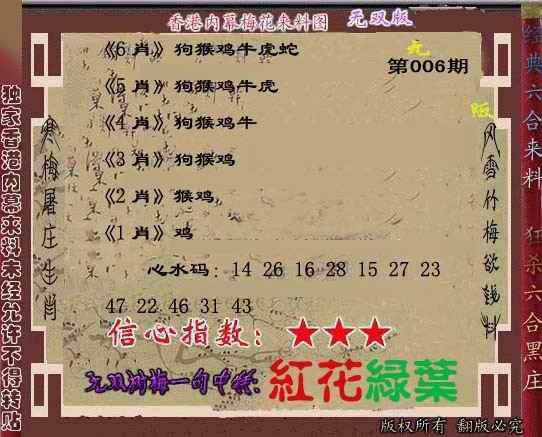 香港内幕梅花来料图 无双版
《6 肖》狗猴鸡牛虎蛇
第006期
《5 肖》狗猴鸡牛虎
《4 肖》狗猴鸡牛
《3 肖》狗猴鸡
《2 肖》猴鸡
《1 肖》鸡
心水码：14 26 16 28 15 27 23
47 22 46 31 43
信心指数：★★★
一句中特:紅花綠葉
版权所有 翻版必究
独家香港内幕来料未经允许不得转贴
寒梅屠庄生肖
风雪竹梅欲钱料
经典六合来料
狂杀六合黑庄